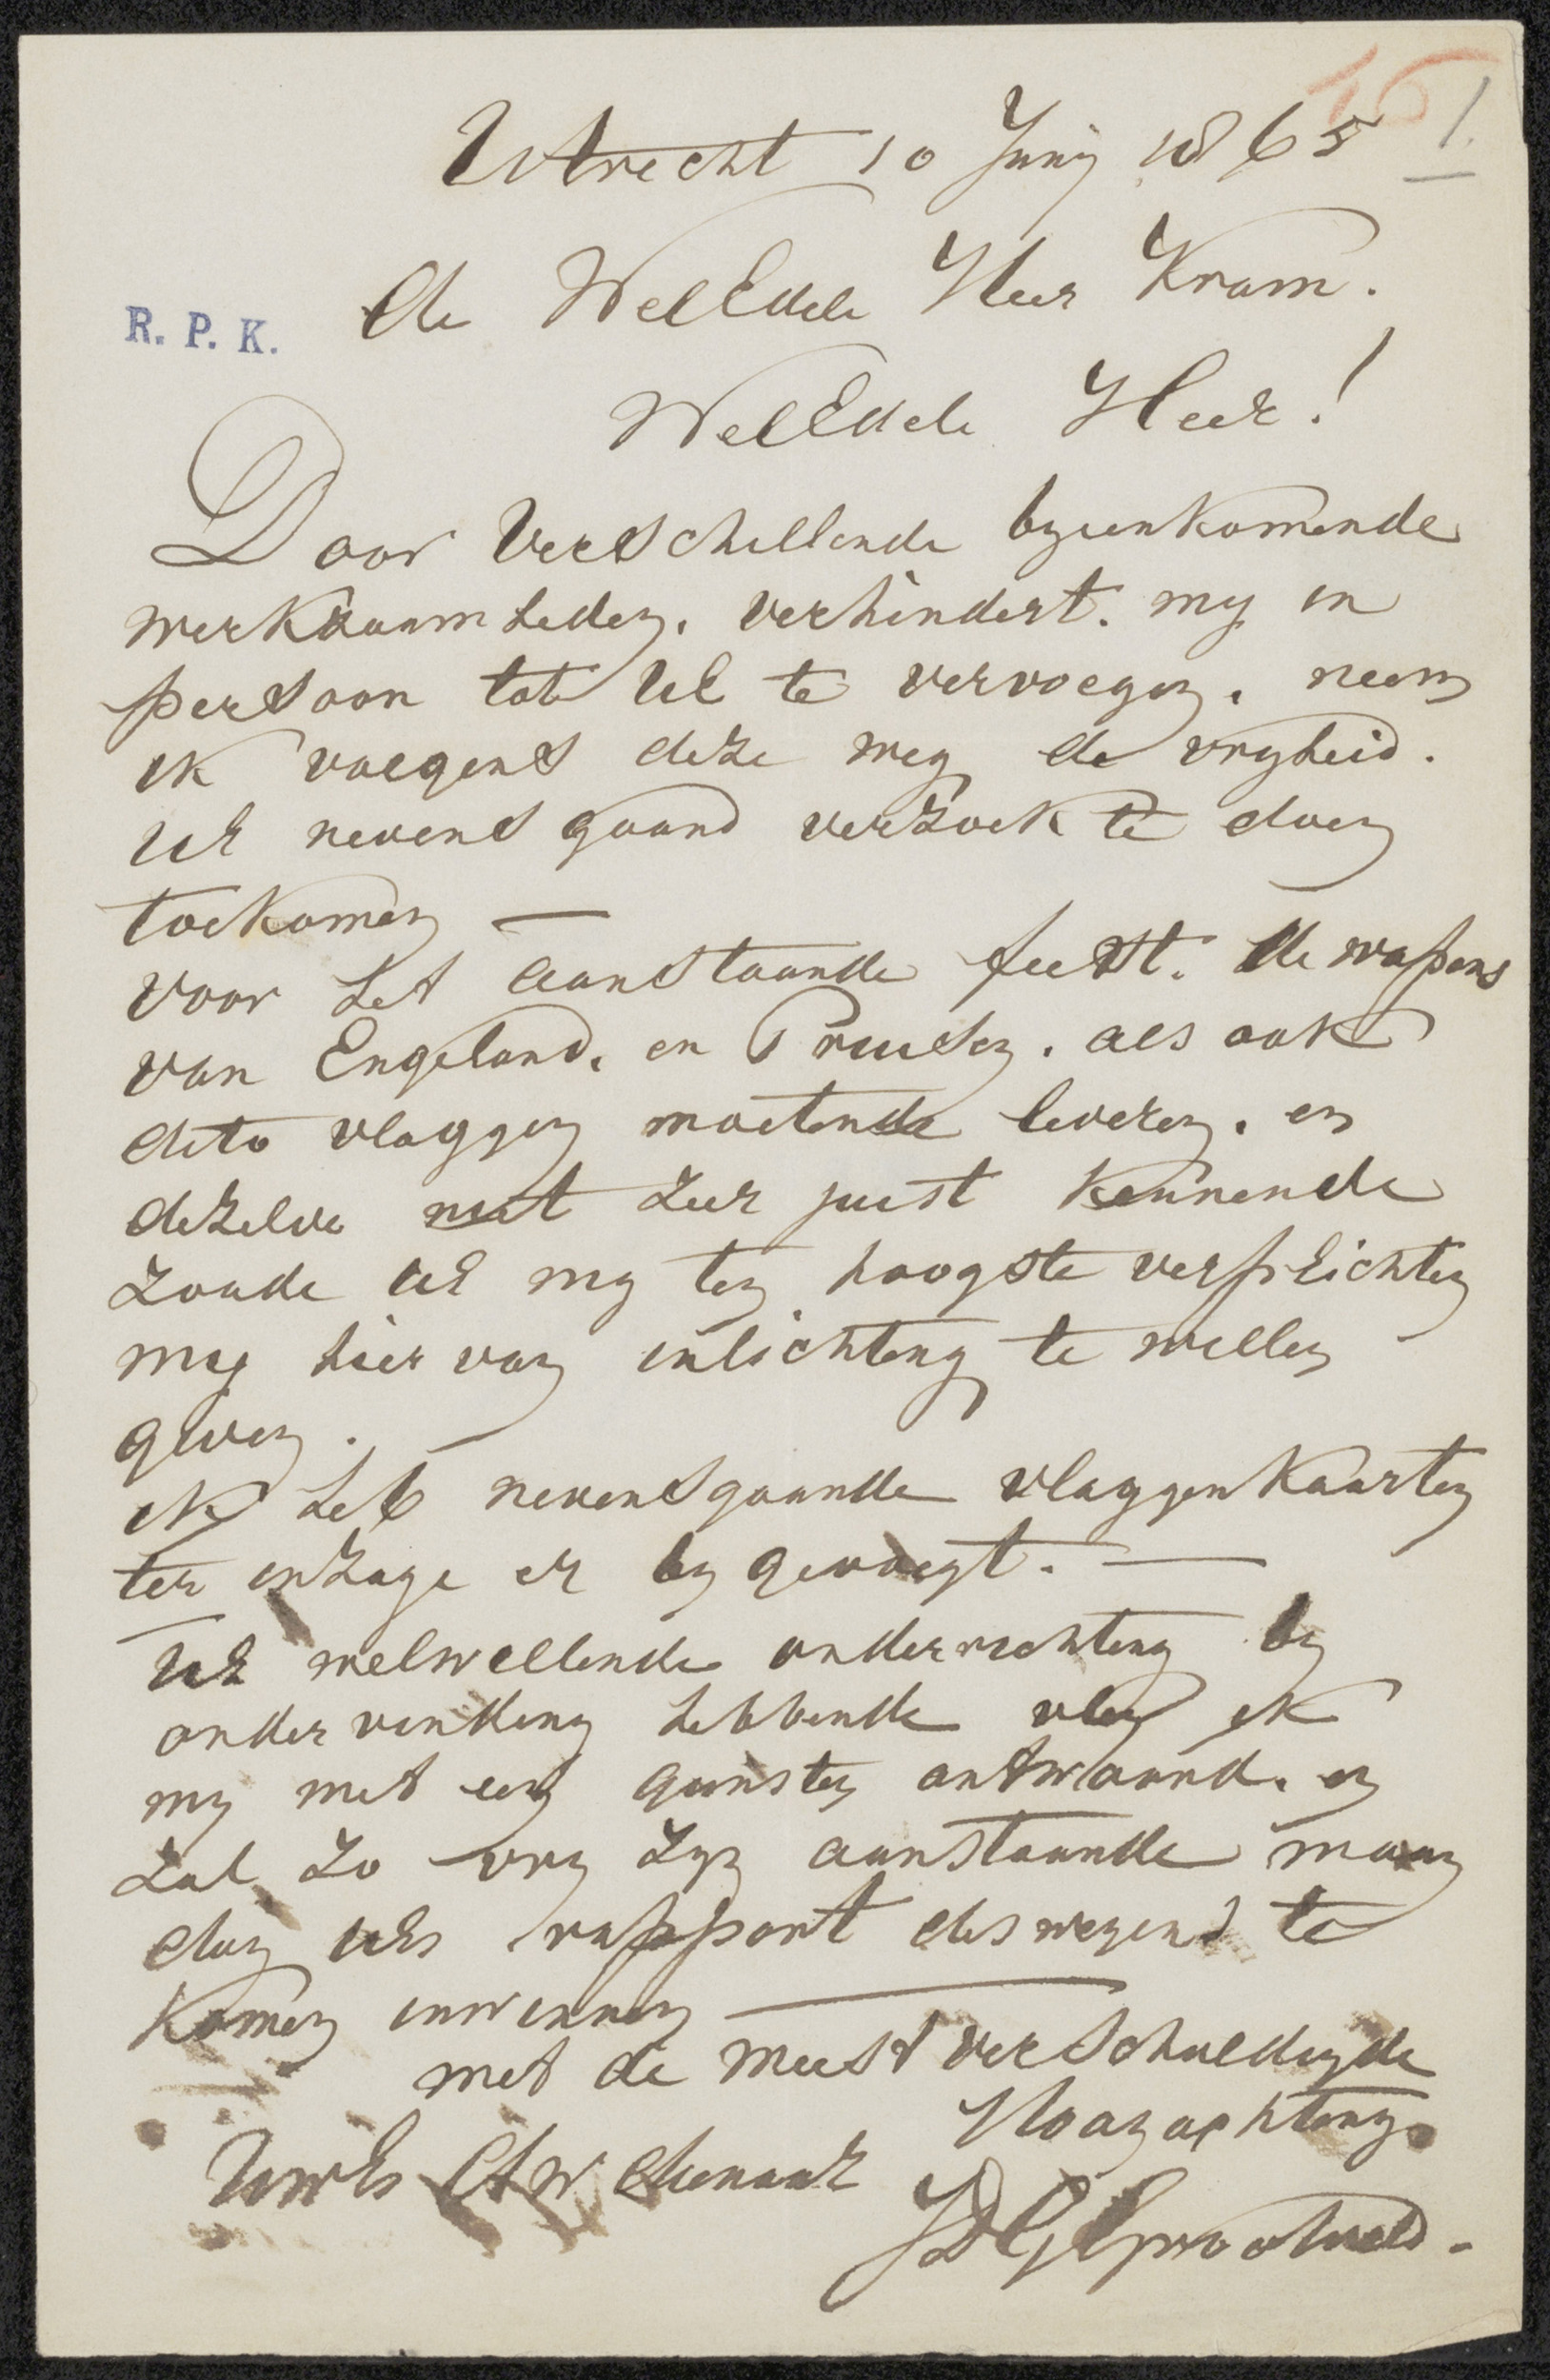 16 1.
Utrecht 10 Junij 1865
De WelEdele Heer Kram.
R. P. K.
WelEdele Heer!
Door Verschillende byeenkomende
werkzaamheden. verhindert. my in
persoon tot UE te vervoegen. neem
ik volgens deze weg de vryheid.
UE nevensgaand verzoek te doen
toekomen —
voor het aanstaande feest. de wapens
van Engeland. en Pruisen. als ook
dito vlaggen moetende leveren. en
dezelve niet zeer juist kennende
zoude UE my ten hoogste verplichten
my hier van inlichting te willen
geven. —
ik heb nevensgaande vlaggenkaarten
ter inzage er by gevoegt. —
UE welwillende onderrichting by
ondervinding hebbende vley ik
my met een gunstig antwoord. en
zal zo vry zyn aanstaande maan
dag UEs rapport deswegens te
komen inwinnen —
met de meest verschuldigde
Hoogachting.
UwEs Dw Dienaar
Grootveld.